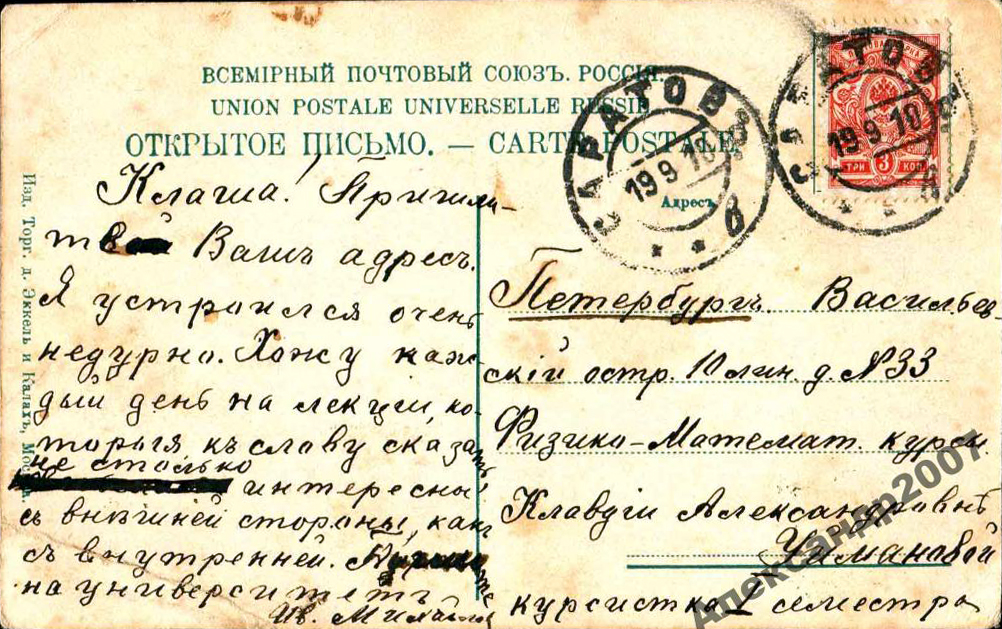 ВСЕМІРНЫЙ ПОЧТОВЫЙ СОЮЗЪ. РОССІЯ.
UNION POSTALE UNIVERSELLE RUSSIE
ОТКРЫТОЕ ПИСЬМО. — CARTE POSTALE.
Изд. Торг. д. Эккель и Калахъ, Москва.
САРАТОВЪ
19 9 10
в
САРАТОВЪ
19 9 10
ПОЧТОВАЯ МАРКА
ТРИ 3 КОП.
Адресъ
Клаша! Пришли-
те Вашъ адресъ.
Я устроился очень
недурно. Хожу каж-
дый день на лекціи, ко-
торыя къ слову сказать
не столько
интересны
съ внѣшней стороны, какъ
съ внутренней. Пишите
на университетъ
Ив.
Петербургъ. Васильев-
скій остр. 10 лин. д. N33
Физико-Математ. курсы
Клавдіи Александровнѣ
Умановой
курсистка I семестра
Александр2007